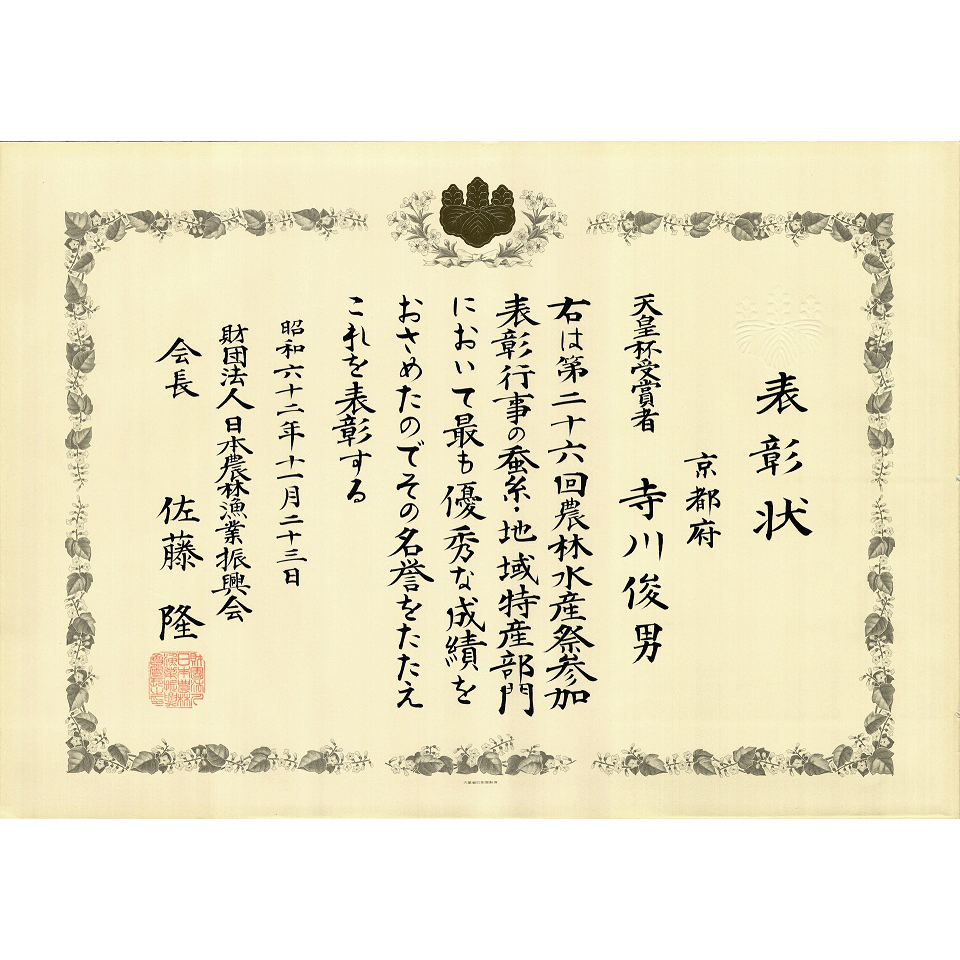 表彰状
京都府
天皇杯受賞者 寺川俊男
右は第二十六回農林水産祭参加
表彰行事の蚕糸・地域特産部門
において最も優秀な成績を
おさめたのでその名誉をたたえ
これを表彰する
昭和六十二年十一月二十三日
財団法人日本農林漁業振興会
会長 佐藤 隆